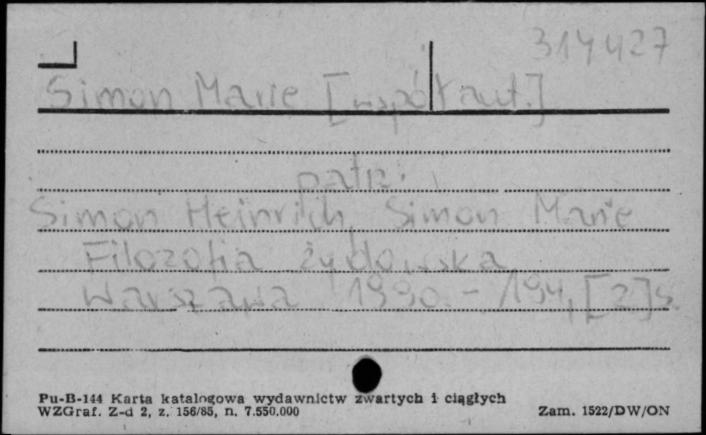 314427
Simon Marie [współaut.]
patrz:
Simon Heinrich, Simon Marie
Filozofia żydowska
Warszawa 1990. - 194, [2] s.
Pu-B-144 Karta katalogowa wydawnictw zwartych i ciągłych
WZGraf. Z-d 2, z. 156/85, n. 7.550.000
Zam. 1522/DW/ON